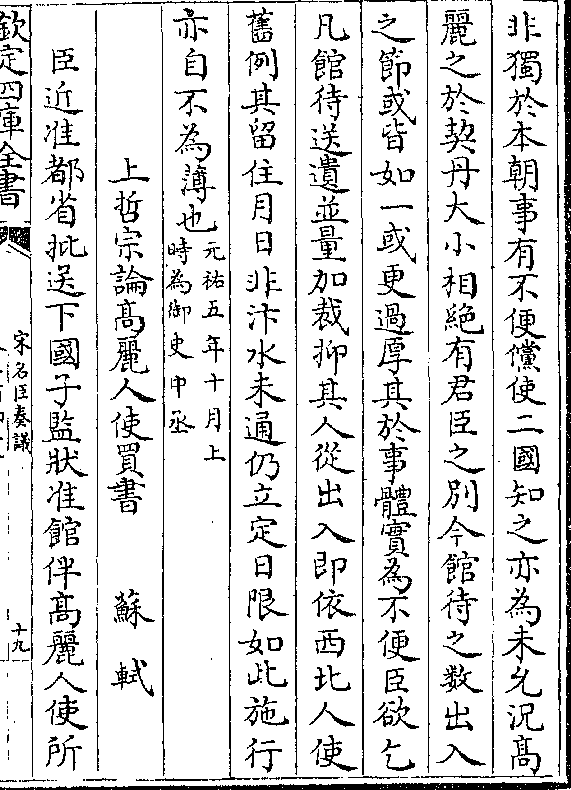 非獨於本朝事有不便儻使二國知之亦為未允況髙
麗之於契丹大小相絶有君臣之别今館待之數出入
之節或皆如一或更過厚其於事體實為不便臣欲乞
凡館待送遺並量加裁抑其人從出入即依西北人使
舊例其留住月日非汴水未通仍立定日限如此施行
亦自不為薄也元祐五年十月上
時為御史中丞
上哲宗論髙麗人使買書 蘇軾
臣近准都省批送下國子監狀准館伴髙麗人使所
欽定四庫全書
宋名臣奏議
十九